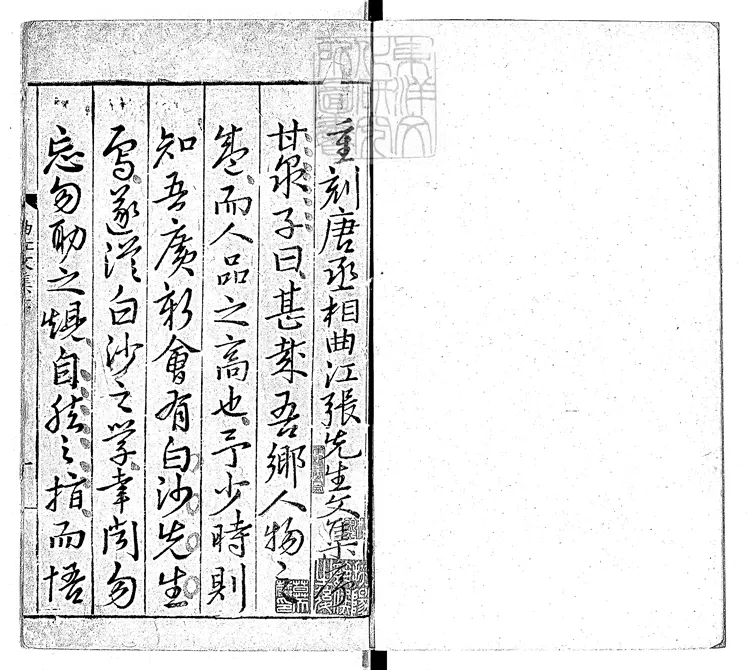 東洋文
化研究
所圖書
重刻唐丞相曲江張先生文集
甘泉子曰甚哉吾鄉人物之
盛而人品之高也予少時則
知吾廣新會有白沙先生
焉遂從白沙之学幸闻勿
忘勿助之規自然之指而悟
曲江文集
一